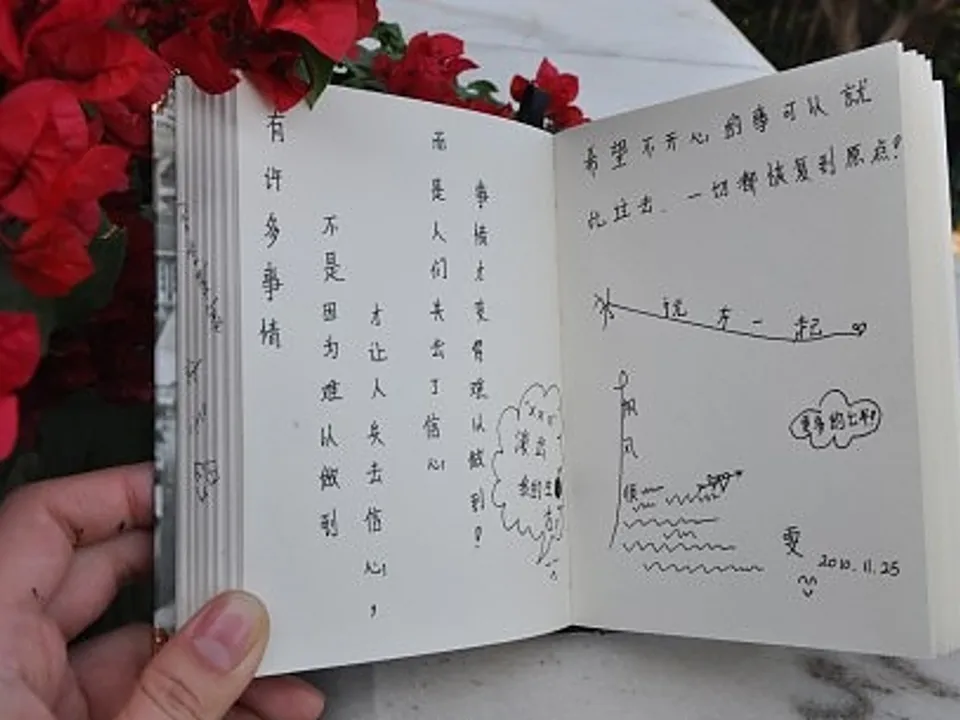 有许多事情
不是因为难以做到
才让人失去信心,
而是人们失去了信心
事情才变得难以做到!
演出
我的
希望不开心的事可以就
此过去、一切都恢复到原点!
一起
帆风顺
更多的
雯
2010.11.25